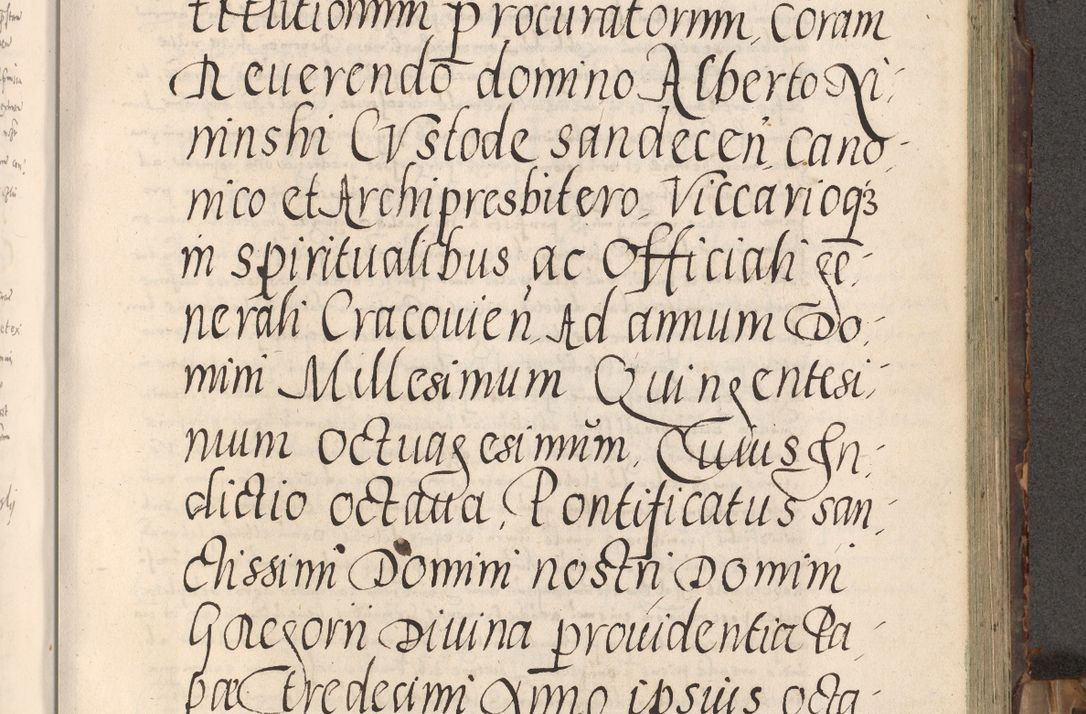 stitutionum procuratorum, Coram
Reuerendo domino Alberto Xi-
ninshi CVstode sandecen̄ Cano-
nico et Archipresbitero, Viccarioqꝫ
in spiritualibus ac Officiali ge-
nerali Cracouien̄, Ad annum Do-
mini Millesimum Quingentesi-
mum octuagesimum, Cuius In-
dictio octaua, Pontificatus san-
ctissimi Domini nostri Domini
Gregorii Diuina prouidentia Pa-
pæ Tredecimi Anno ipsius octa-